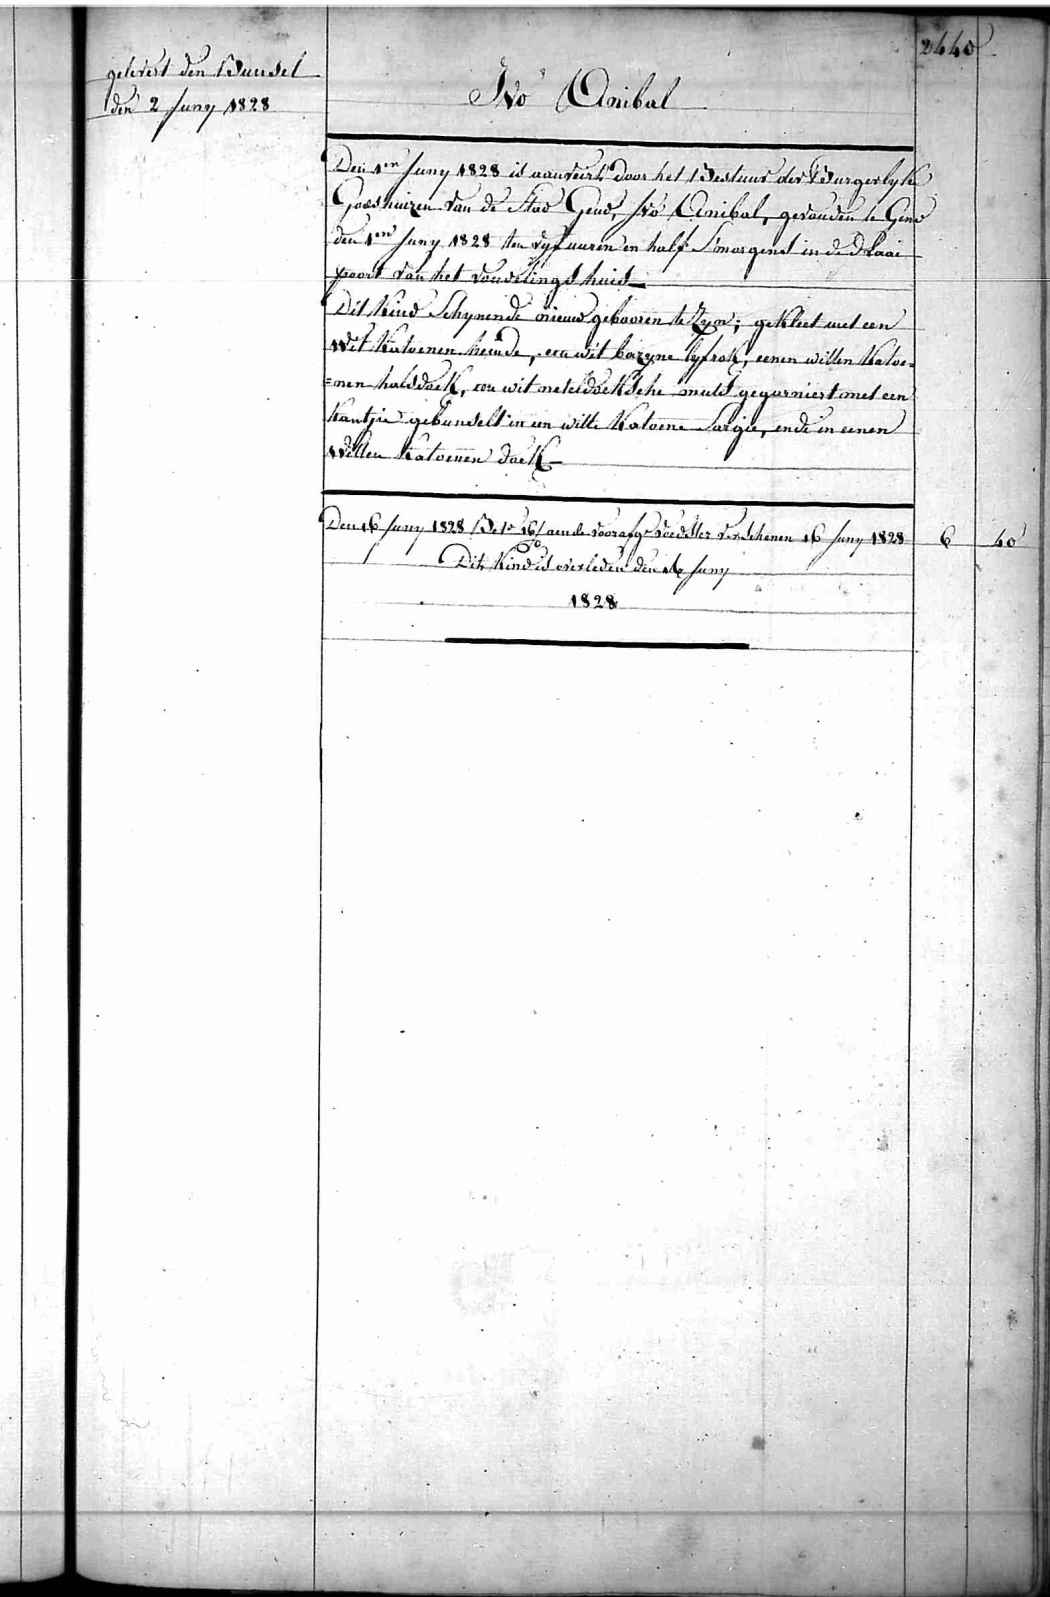 2440
gelevert den Bunsel
den 2 Juny 1828
Ivo Anibal
Den 1en Juny 1828 is aanveirt door het Bestuur der Burgerlyke
Godshuizen van de Stad Gend, Ivo Anibal, gevonden te Gend
den 1en Juny 1828 ten vyf uuren en half S'morgens in de draai
poort van het vondelings huis
Dit Kind Schynende nieuw gebooren te Zyn; gekleet met een
wit Katoenen hemde, een wit bazyne lyfrok, eenen witten Katoe=
=nen halsdoek, een wit neteldoeksche muts gegarniert met een
Kantjie gebunselt in een witte Katoene Sargie, ende in eenen
Witten Katoenen doek
Den 16 Juny 1828 aen de voedster verschenen 16 Juny 1828 6 40
Dit Kind is overleden den 16 Juny
1828